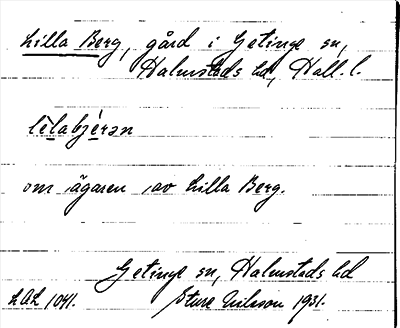 Lilla Berg, gård i Getinge sn,
Halmstads hd, Hall. l.
lìlabjérən
om ägaren av Lilla Berg.
Getinge sn, Halmstads hd
LAL 1041. Sture Nilsson 1931.